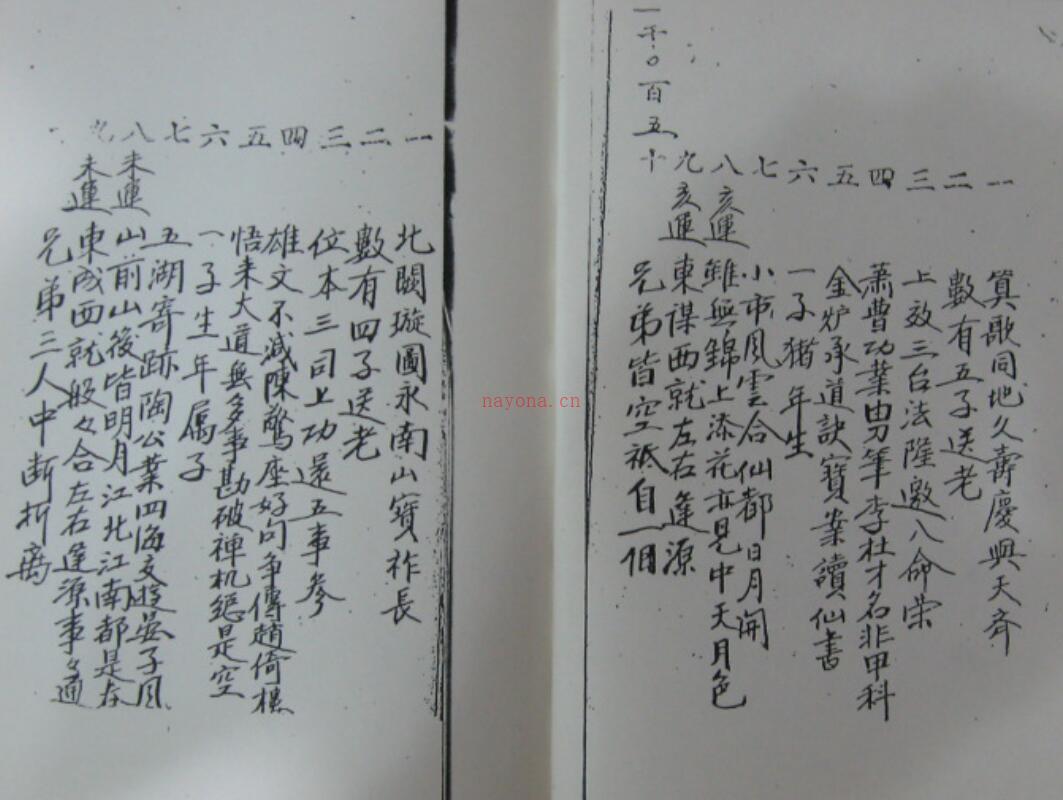 一千〇百五十
一 二 三 四 五 六 七 八 九
算歌同地久壽慶與天齊
數有五子送老
上效三台法隆邀八命荣
蕭曹功業由刀筆李杜才名非甲科
金炉承道訣寶案讀仙書
一子猪年生
小市風雲合仙都日月開
亥運 雖無錦上添花亦見中天月色
亥運 東謀西就左右逢源
兄弟皆空祗自一個
一 二 三 四 五 六 七 八 九
北闕璇圖永南山寶祚長
數有四子送老
位本三司上功還五事參
雄文不減陳驚座好句争傳趙倚樓
悟来大道無多事勘破禅机總是空
一子生年属子
五湖寄跡陶公業四海交遊晏子風
未運 山前山後皆明月江北江南都是春
未運 東成西就般々合左右逢源事々通
兄弟三人中断折离
nayona.cn